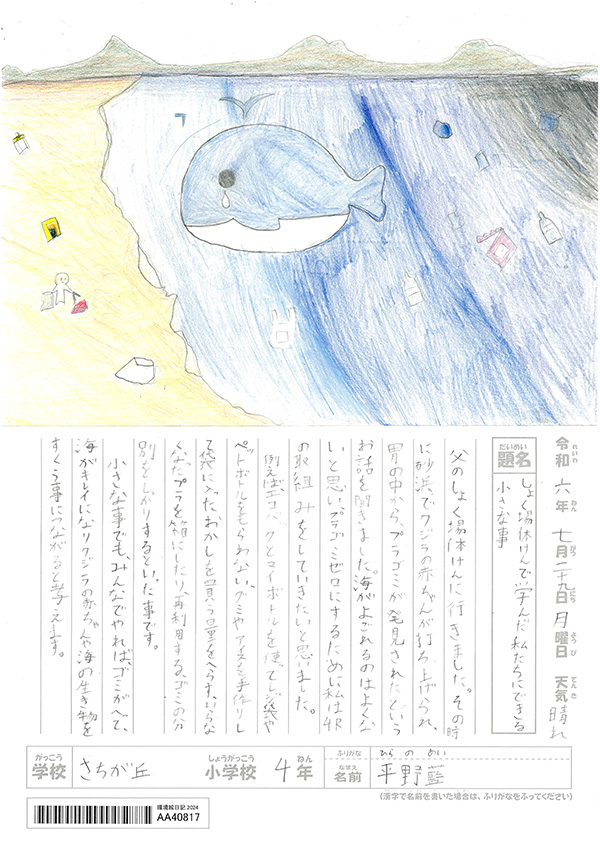 令和六年七月二十九日月曜日 天気 晴れ
れいわ ねん がつ にち ようび てんき
だいめい
題名
しょく場体けんで学んだ私たちにできる
小さな事
父のしょく場体けんに行きました。その時
に砂浜でクジラの赤ちゃんが打ち上げられ、
胃の中から、プラゴミが発見されたという
お話を聞きました。海がよごれるのはよくな
いと思い、プラゴミゼロにするために私は4R
の取組みをしていきたいと思いました。
例えば、エコバックとマイボトルを使ってレジ袋や
ペットボトルをもらわない、グミやアイスを手作りし
て袋に入ったおかしを買う量をへらす、いらな
くなったプラを箱にしたり、再利用する、ゴミの分
別をしっかりするといった事です。
小さな事でも、みんなでやれば、ゴミがへって、
海がキレイになりクジラの赤ちゃんや海の生き物を
すくう事につながると考えます。
がっこう
学校
さちが丘
しょうがっこう
小学校
4年
ねん
ふりがな
ひらの めい
なまえ
名前
平野藍
(漢字で名前を書いた場合は、ふりがなをふってください)
環境絵日記 2024
AA40817